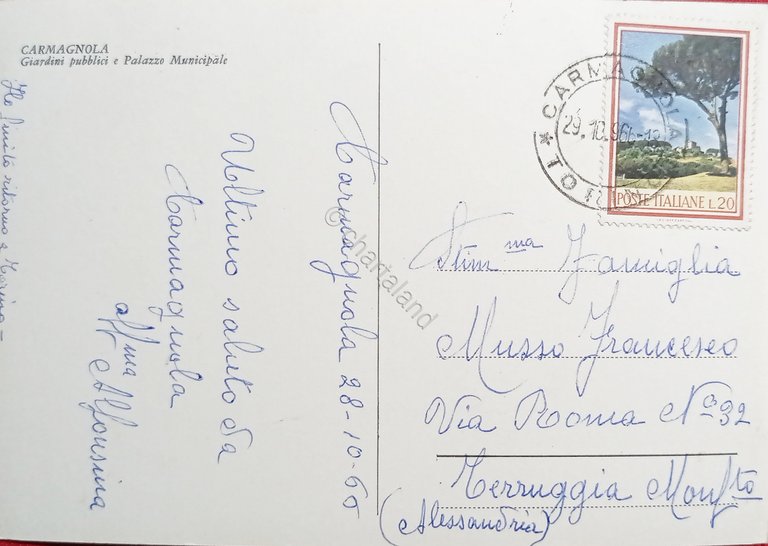 CARMAGNOLA
Giardini pubblici e Palazzo Municipale
Carmagnola 28-10-66
Ultimo saluto da
Carmagnola
aff.ma Alfonsina
Ho finito ritorno a Torino -
CARMAGNOLA
29.10.966-12
* TORINO *
POSTE ITALIANE L.20
Stim.ma Famiglia
Musso Francesco
Via Roma N° 32
Terruggia Monf.to
(Alessandria)
©chartaland